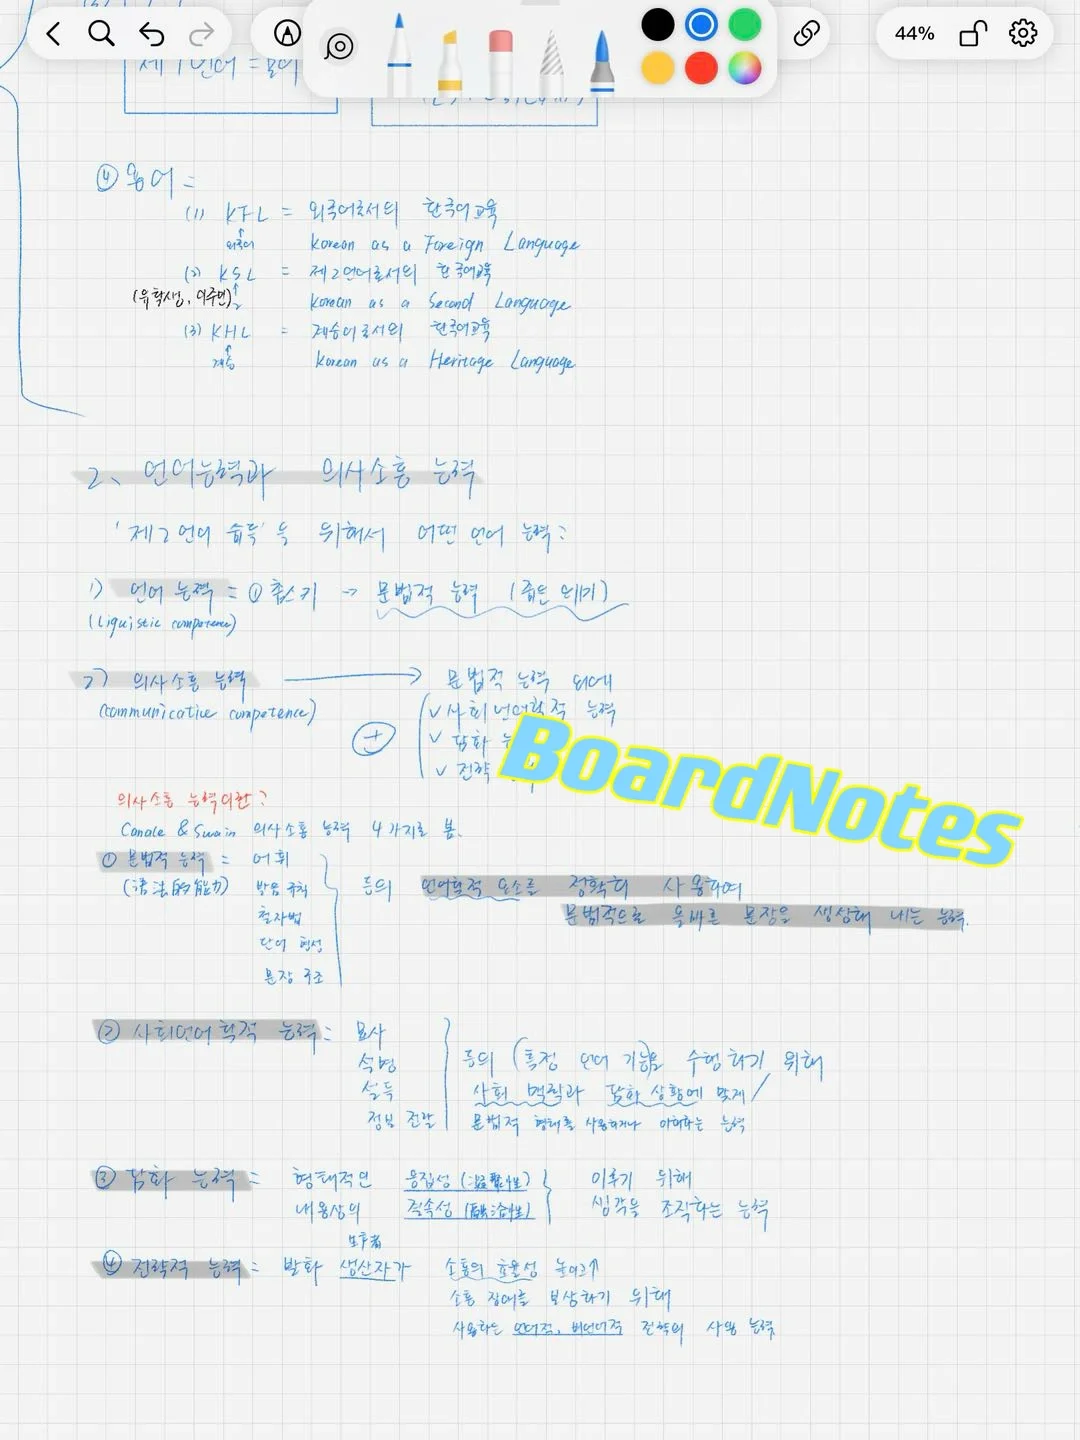 44%
제1언어 = 모어
④ 용어 =
(1) KFL = 외국어로서의 한국어교육
외국어 Korean as a Foreign Language
(2) KSL = 제2언어로서의 한국어교육
(유학생, 이주민) 2 Korean as a Second Language
(3) KHL = 계승어로서의 한국어교육
계승 Korean as a Heritage Language
2、언어능력과 의사소통 능력
'제2언어 습득'을 위해서 어떤 언어 능력?
1) 언어 능력 = ① 촘스키 → 문법적 능력 (좁은 의미)
(liguistic competence)
2) 의사소통 능력 → 문법적 능력 외에
(communicative competence) ∨ 사회언어학적 능력
+ ∨ 담화
∨ 전략
BoardNotes
의사소통 능력이란?
Canale & Swain 의사소통 능력 4가지로 봄.
① 문법적 능력 = 어휘
(语法的能力) 발음 규칙 등의 언어학적 요소를 정확히 사용하여
철자법 문법적으로 올바른 문장을 생산해 내는 능력.
단어 형성
문장 구조
② 사회언어학적 능력 = 묘사
설명 등의 (특정 언어 기능을 수행하기 위해
설득 사회 맥락과 담화 상황에 맞게/
정보 전달 문법적 형태를 사용하거나 이해하는 능력
③ 담화 능력 = 형태적인 응집성 (凝聚性) 이루기 위해
내용상의 결속성 (融洽性) 생각을 조직하는 능력
生产者
④ 전략적 능력 = 발화 생산자가 소통의 효율성 높이고↑
소통 장애를 보상하기 위해
사용하는 언어적, 비언어적 전략의 사용 능력